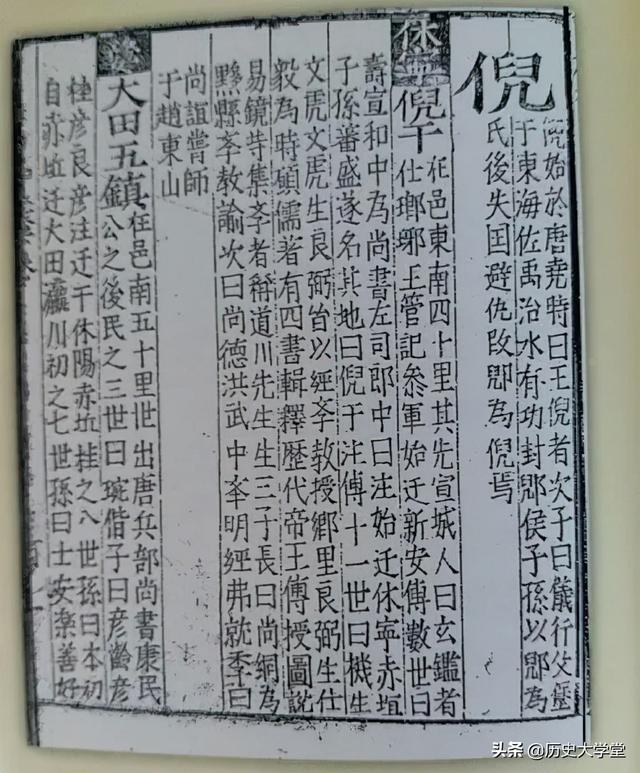 倪
倪始於唐堯時曰王倪者次子曰儀行父
于東海佐禹治水有功封郳侯子孫以郳為
氏後失囯避仇改郳為倪焉
休寧
倪干
在邑東南四十里其先宣城人曰玄鑑者
仕瑯琊王管記叅軍始迁新安傳數世曰
壽宣和中為尚書左司郎中曰注始迁休寧赤坵
子孫蕃盛遂名其地曰倪于注傳十一世曰機生
文虎文虎生良弼皆以經斈教授鄉里良弼生仕
毅為時碩儒著有四書輯釋歷代帝王傳授圖說
易鏡等集斈者稱道川先生生三子長曰尚絅為
黟縣斈教諭次曰尚德洪武中峯明經弗就季曰
尚誼嘗師
于趙東山
大田五鎮
在邑南五十里世出唐兵部尚書康民
公之後民之三世曰琬偕子曰彥齡彥
桂彥良彥注迁于休陽赤坵桂之八世孫曰本初
自赤坵迁大田瀛川初之七世孫曰士安楽善好
头条 @历史大学堂